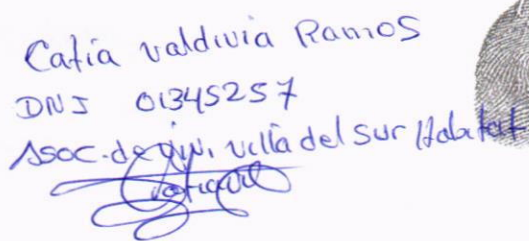 Catia valdivia Ramos
DNI 01345257
Asoc. de viv. villa del Sur Habitat